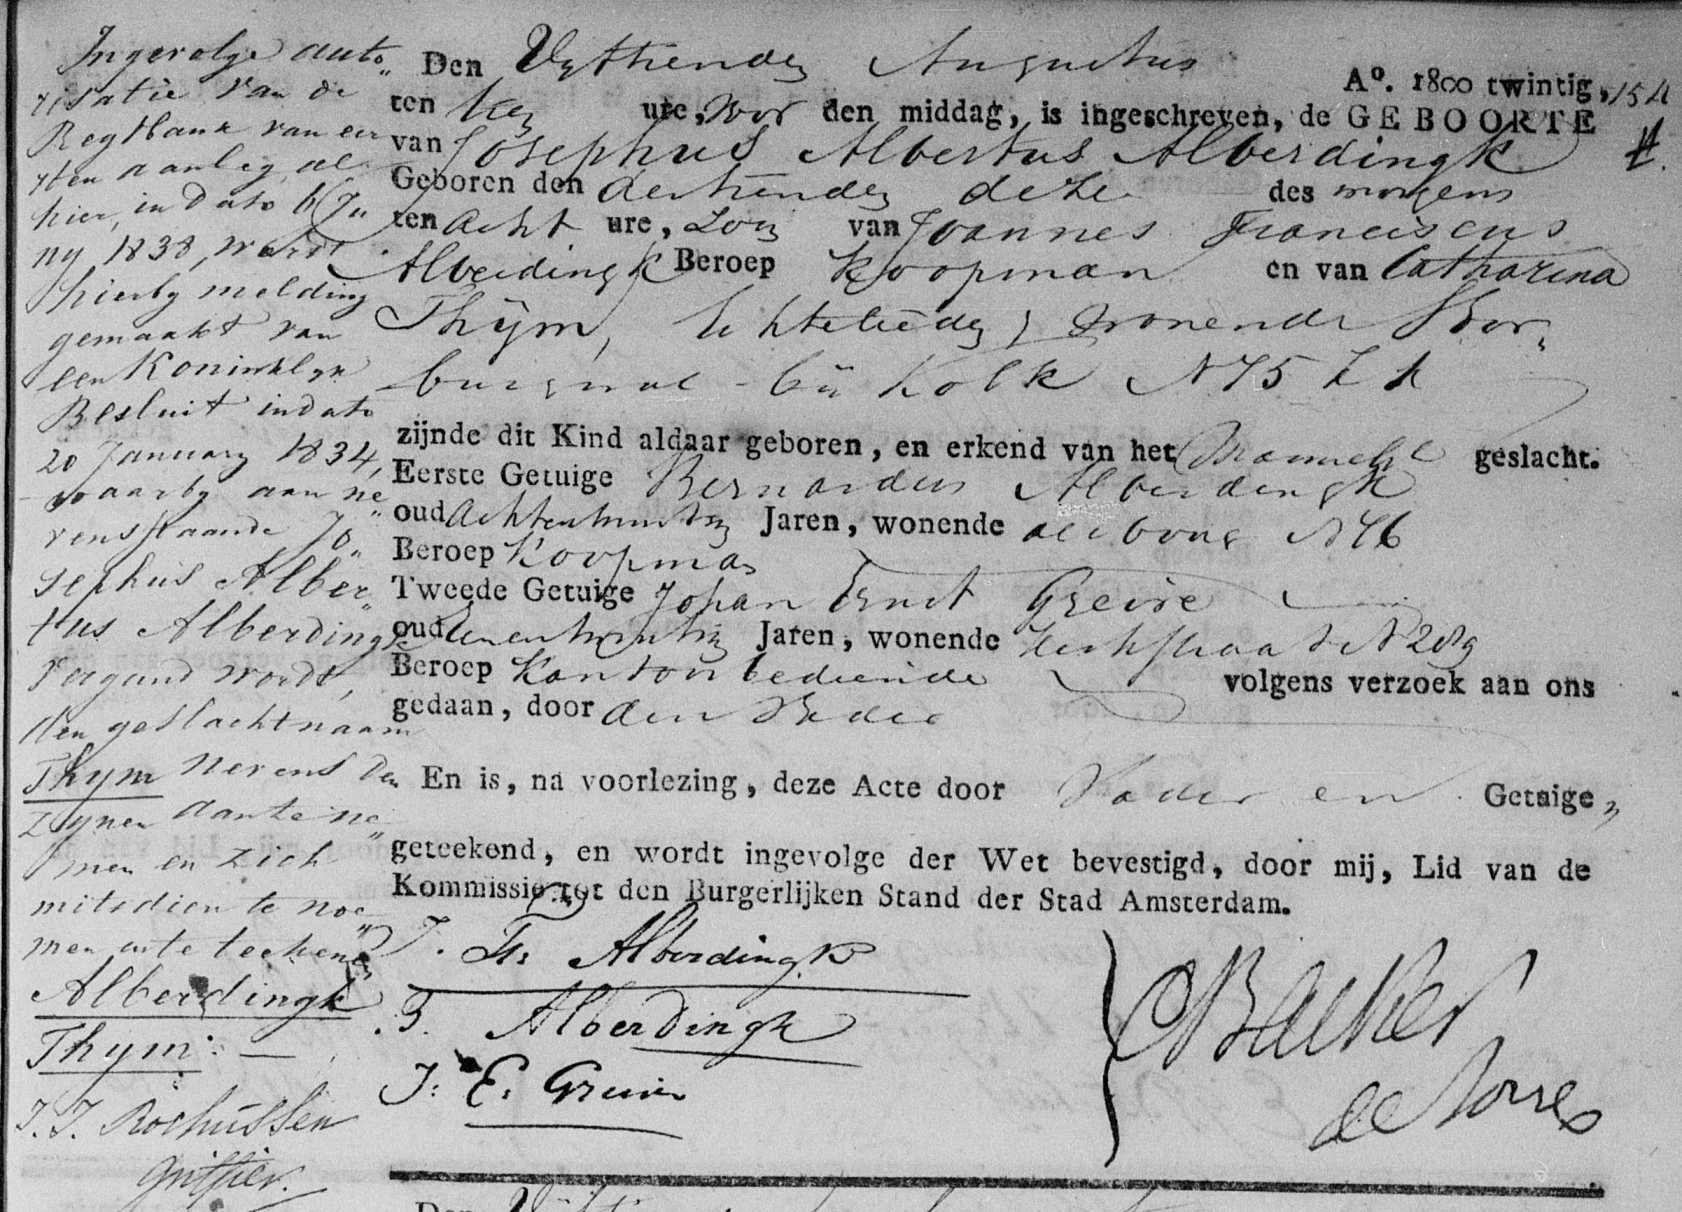 Ingevolge auto„
risatie van de
Regtbank van eer
sten aanleg al„
hier, in dato 6 Ju„
ny 1838, wordt
hierby melding
gemaakt van
een Koninklyk
Besluit in dato
20 January 1834,
waarby aan ne„
vensstaande Jo„
sephus Alber„
tus Alberdingk
vergund wordt,
den geslachtnaam
Thym nevens den
zynen aan te ne„
men en zich
mitsdien te noe„
men en te teekenen
Alberdingk
Thym:—
J. J. Rochussen
Griffier.
Den Vyftienden Augustus Aº. 1800 twintig,
ten tien ure, voor den middag, is ingeschreven, de GEBOORTE
van Josephus Albertus Alberdingk
Geboren den dertienden dezer des morgens
ten acht ure, Zoon van Joannes Franciscus
Alberdingk Beroep koopman en van Catharina
Thijm, Echtelieden, wonende Voor„
burgwal bij Kolk N 75 L 1
zijnde dit Kind aldaar geboren, en erkend van het Mannelyk geslacht.
Eerste Getuige Bernardus Alberdingk
oud achtentwintig Jaren, wonende als boven N 76
Beroep Koopman
Tweede Getuige Johan Ernst Greive
oud Jaren, wonende Kerkstraat N 289
Beroep Kantoorbediende volgens verzoek aan ons
gedaan, door den Vader
En is, na voorlezing, deze Acte door Vader en Getuigen
geteekend, en wordt ingevolge der Wet bevestigd, door mij, Lid van de
Kommissie tot den Burgerlijken Stand der Stad Amsterdam.
J. Fs. Alberdingk
B. Alberdingk
J: E. Greive
C Backer
Den